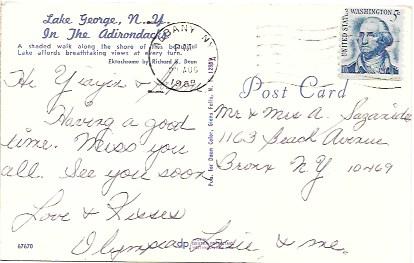 Lake George, N. Y.
In The Adirondacks
A shaded walk along the shore of this beautiful
Lake affords breathtaking views at every turn.
Ektachrome by Richard K. Dean
ALBANY NY
PM
AUG
UNITED STATES
WASHINGTON 5c
Post Card
Hi
Having a good
time. Miss you
all. See you soon
Love & Kisses
Olympia & me.
Mr & Mrs A.
1163 Beach Avenue
Bronx N Y 10469
Pub. for Dean Color, Glens Falls, N. Y. 12801
67670
dp